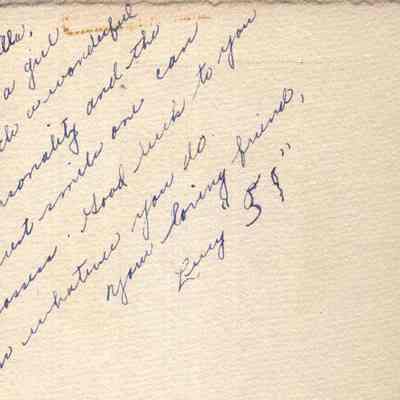 a girl
wonderful
and the
smile one can
possess. Good luck to you
whatever you do.
Your loving friend,
Lucy "59"